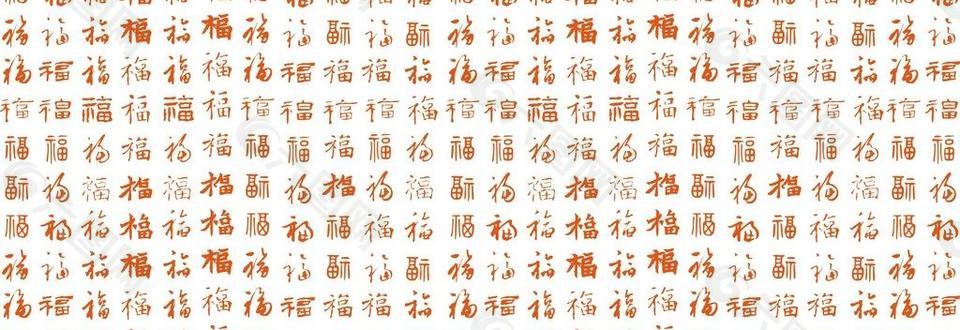 福福福福福福福福福福福福福福福福福福福福福福福福
福福福福福福福福福福福福福福福福福福福福福福福福
福福福福福福福福福福福福福福福福福福福福福福福福
福福福福福福福福福福福福福福福福福福福福福福福福
福福福福福福福福福福福福福福福福福福福福福福福福
福福福福福福福福福福福福福福福福福福福福福福福福
福福福福福福福福福福福福福福福福福福福福福福福福
福福福福福福福福福福福福福福福福福福福福福福福福